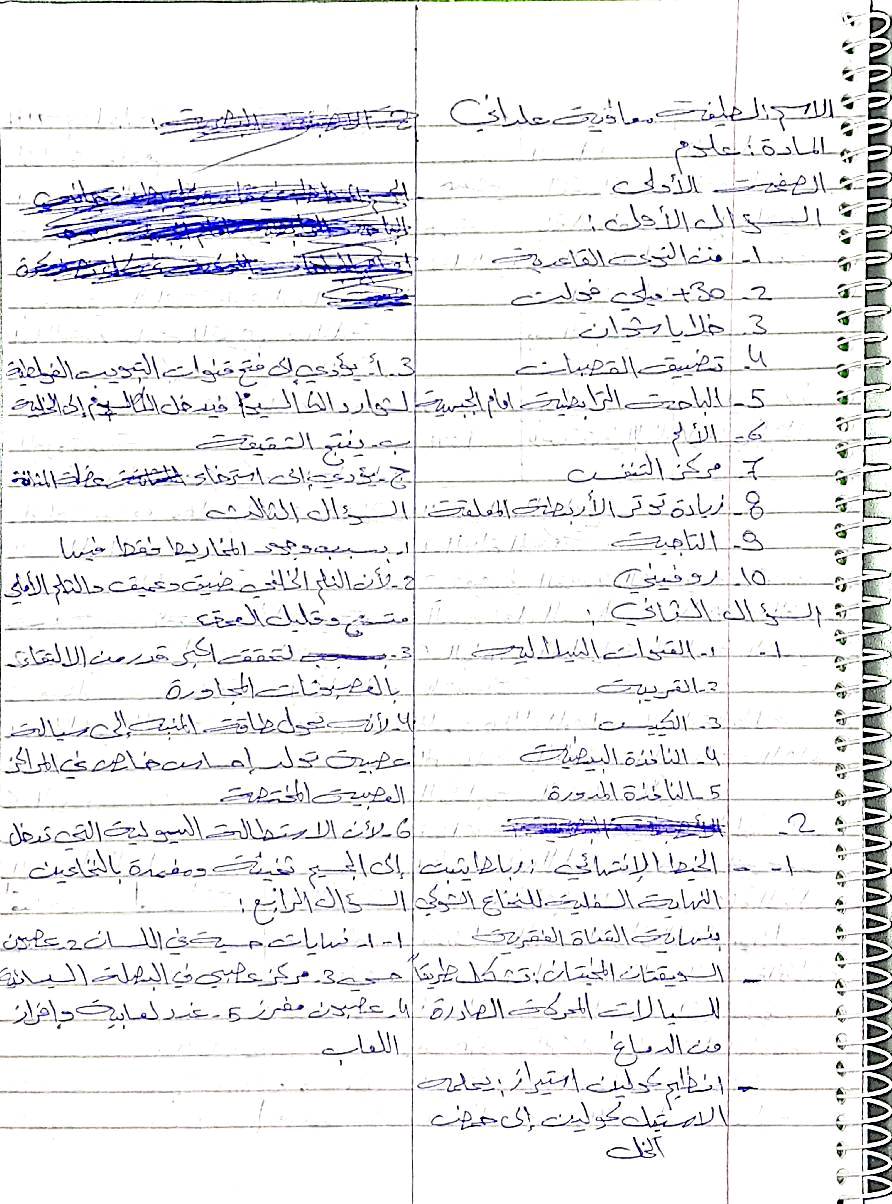 الاسم: لطيفة معاذية علداني
المادة: علوم
الصفحة الأولى
السؤال الأول:
1- من النوى القاعدية
2- +30 ميلي فولت
3- خلايا شوان
4- تضييق القصبات
5- الباحة الترابطية امام الجبهية
6- الألم
7- مركز التنفس
8- زيادة توتر الأربطة المعلقة
9- التاجية
10- روفيني
السؤال الثاني:
1- 1- القنوات الهلالية
2- القريبة
3- الكييس
4- النافذة البيضية
5- النافذة المدورة
2-
1- - الخيط الإنتهائي: رباط يثبت
النهاية السفلية للنخاع الشوكي
بنهاية القناة الفقرية
- السويقتان المخيتان: تشكل طريقاً
للسيالات المحركة الصادرة
من الدماغ
- انظيم كولين استيراز: يحلمه
الاستيل كولين إلى حمض
الخل
3- أ- يؤدي إلى فتح قنوات التبويب الفولطية
لشوارد الكالسيوم فيدخل الكالسيوم إلى الخلية
ب- ينتج الشقيقة
ج- يؤدي إلى استرخاء عضلة المثانة
السؤال الثالث
1- بسبب وجود المخاريط فقط فيها
2- لأن الثلم الخلفي ضيق وعميق والثلم الأمامي
متسع وقليل العمق
3- لتحقق اكبر قدر من الالتقاء
بالعصبونات المجاورة
4- لأنه يحول طاقة المنبه إلى سيالة
عصبية تولد إحساس خاص في المراكز
العصبية المختصة
6- لأن الاستطالة الهيولية التي تدخل
إلى الجسيم ثخينة ومغمدة بالنخاعين
السؤال الرابع:
1- 1- نهايات حسية في اللسان 2- عصبون
حسي 3- مركز عصبي في البصلة السيسائية
4- عصبون مفرز 5- غدد لعابية وإفراز
اللعاب